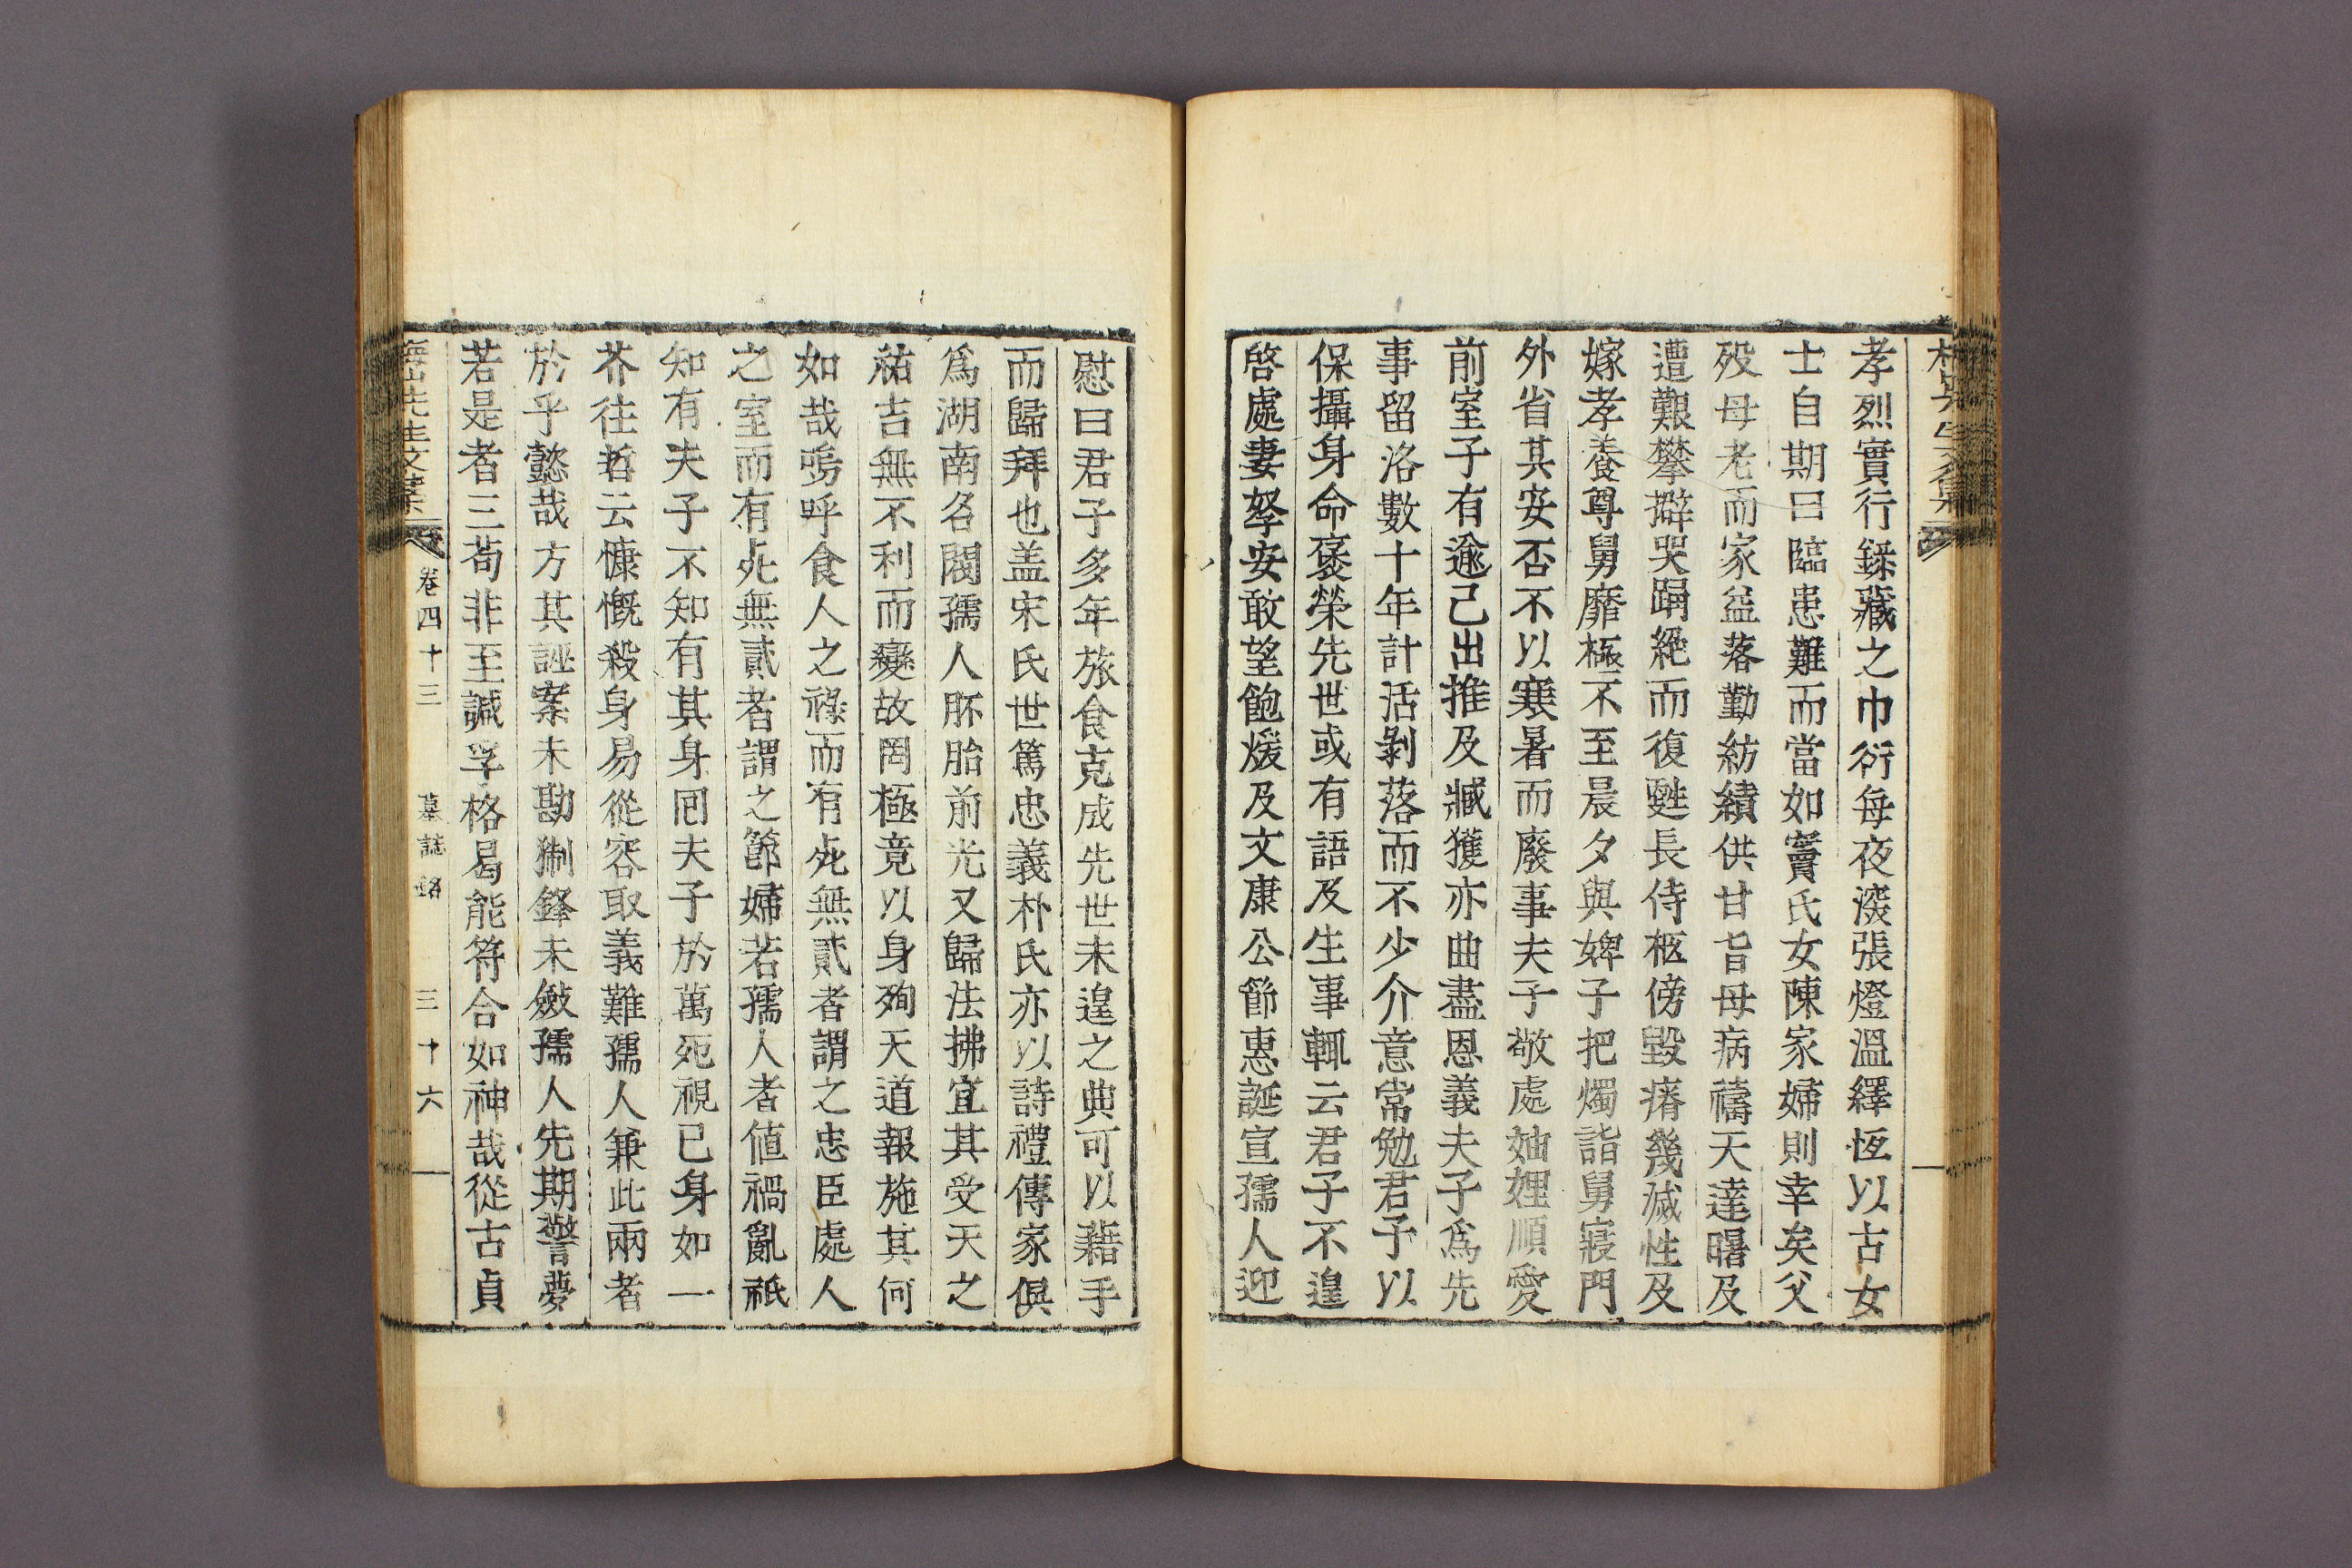 孝烈實行錄藏之巾衍每夜深張燈溫繹恆以古女
士自期曰臨患難而當如竇氏女陳家婦則幸矣父
歿母老而家益落勤紡績供甘旨母病禱天達曙及
遭艱攀擗哭踊絶而復甦長侍柩傍毀瘠幾滅性及
嫁孝養尊舅靡極不至晨夕與婢子把燭詣舅寢門
外省其安否不以寒暑而廢事夫子敬處妯娌順愛
前室子有逾己出推及臧獲亦曲盡恩義夫子爲先
事留洛數十年計活剝落而不少介意常勉君子以
保攝身命褒榮先世或有語及生事輒云君子不遑
啓處妻孥安敢望飽煖及文康公節惠誕宣孺人迎
慰曰君子多年旅食克成先世未遑之典可以藉手
而歸拜也盖宋氏世篤忠義朴氏亦以詩禮傳家俱
爲湖南名閥孺人胚胎前光又歸法拂宜其受天之
祐吉無不利而變故罔極竟以身殉天道報施其何
如哉嗚呼食人之祿而有死無貳者謂之忠臣處人
之室而有死無貳者謂之節婦若孺人者値禍亂祇
知有夫子不知有其身囘夫子於萬死視已身如一
芥往哲云慷慨殺身易從容取義難孺人兼此兩者
於乎懿哉方其誣案未勘猘鋒未斂孺人先期警夢
若是者三苟非至諴孚格曷能符合如神哉從古貞
梅山先生文集 卷四十三 墓誌銘 三十六